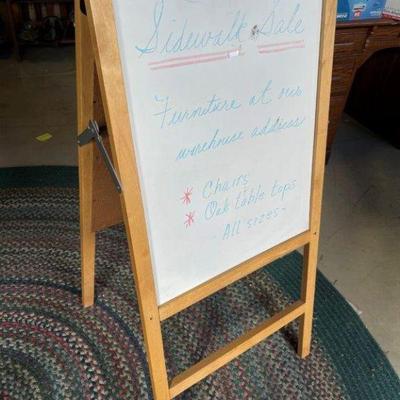 Sidewalk Sale
Furniture at our
warehouse address
* Chairs
* Oak table tops
- All sizes -